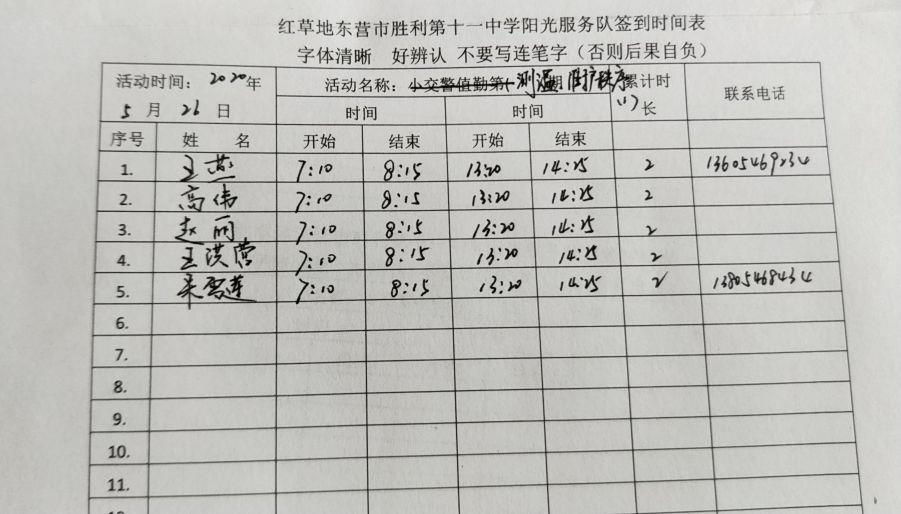 红草地东营市胜利第十一中学阳光服务队签到时间表
字体清晰 好辨认 不要写连笔字（否则后果自负）
活动时间：2020年 活动名称：小交警值勤第 测温 期 累计时长 联系电话
5月26日 时间 时间
序号 姓名 开始 结束 开始 结束
1. 王燕 7:10 8:15 13:20 14:25 2 13605469234
2. 高伟 7:10 8:15 13:20 14:25 2
3. 赵丽 7:10 8:15 13:20 14:25 2
4. 王洪营 7:10 8:15 13:20 14:25 2
5. 7:10 8:15 13:20 14:25 2 13805468434
6.
7.
8.
9.
10.
11.